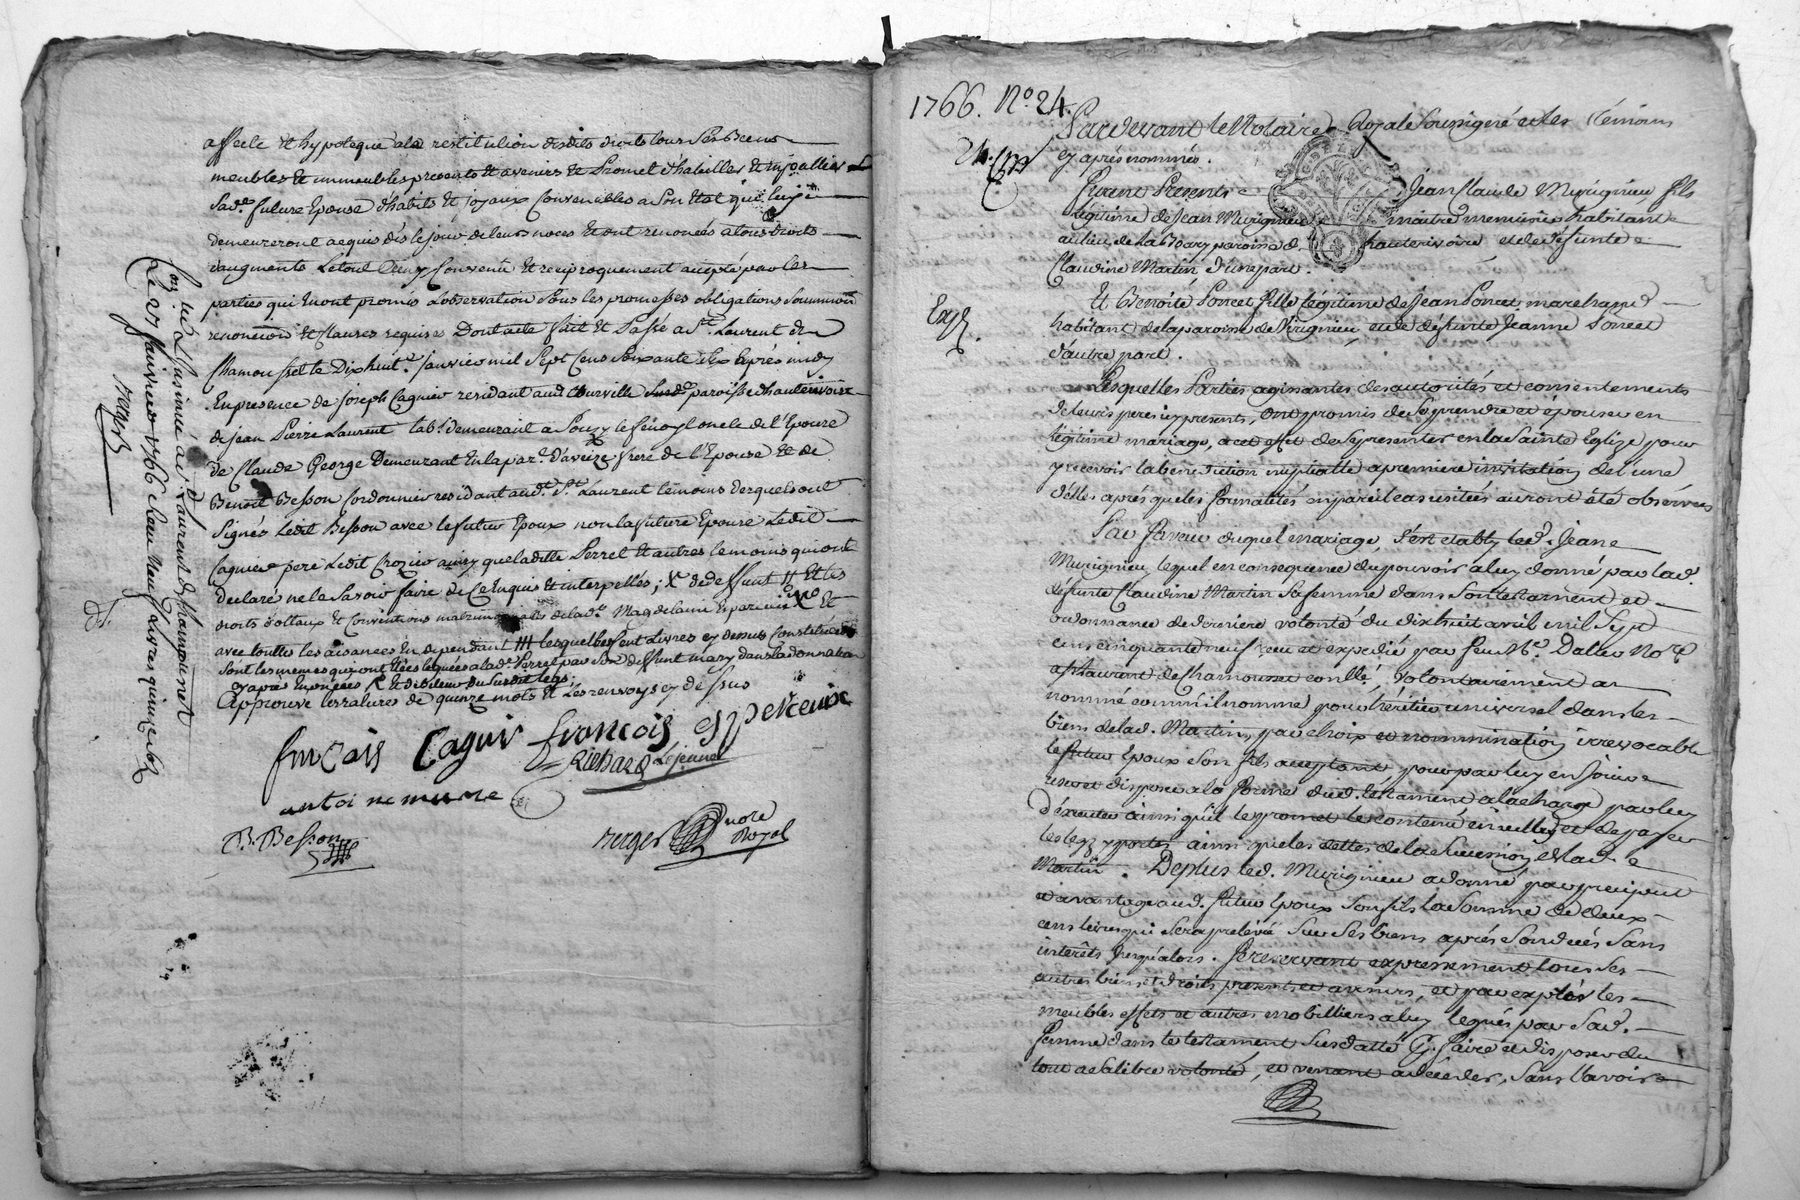 affecté et hypotequé a la restitution desdits droits tous ses biens
meubles et immeubles presents et avenirs et Promet d'habiller et enjoallier
Sad.e future Epouse d'habits et joyaux Convenables a Son Etat qui luy
demeureront acquis dès le jour de leurs noces et ont renoncés a tous droits
d'augments Le tout Ainsy Convenu et reciproquement accepté par les
parties qui En ont promis L'observation Sous les promesses obligations Soumission
renonciaōn et clauses requises Dont acte fait et Passé a St. Laurent de
Chamousset le Dixhuit.e janvier mil Sept Cens Soixante Six après midy
En presence de joseph Cagnier residant aud. paroisse d'hauterivoire
de jean Pierre Laurent lab.r demeurant a Souzy oncle de l'Epouse
de Claude George Demeurant En la par.e d'aveize frere de l'Epouse et de
Benoit Besson Cordonnier residant aud.t St. Laurent temoins desquels ont
Signés Ledit Besson avec le futur Epoux non la future Epouse Ledit
Cagnier pere Ledit Crozier ainsy que ladite Perret et autres temoins qui ont
declaré ne le Savoir faire de ce Enquis et interpellés; X de deffunt # Et les
droits dottaux et Conventions matrimoniales de lad.e Magdelaine
avec touttes les aisances En dependant ### lesquelles Cent Livres cy dessus Constituées
Sont les memes qui ont étés leguées a lad.e Perret par Son deffunt mary dans la donnation
cy après Enoncées X et debiteur du Susdit legs.
Approuvé les ratures de quinze mots et Les renvoys cy dessus
françois Cagnir françois esperceuix
Richard Lejeune
antoine mure
B. Besson
Berger nore Royal
Con.lé et Insinué a St. Laurent de Chamousset
Le 27 janvier 1766 Reçu Neuf Livres quinze sols
Berger
1766. No. 24.
Expé.
Pardevant le Notaire Royal Soussigné et les témoins
cy après nommés.
Furent Presents Jean Claude Murigneu fils
légitime de Jean Murigneu maître menuisier habitant
au lieu de paroisse d'hauterivoire et de défunte
Claudine Martin d'une part.
Et Benoite Poncet fille légitime de Jean Poncet marchand
habitant de la paroisse de Virigneu, et de défunte Jeanne Poncet
d'autre part.
Lesquelles Parties agissantes des autorités et consentements
de leurs peres icy presents, ont promis de se prendre et épouser en
légitime mariage, a cet effet de se presenter en la Sainte Eglize pour
y recevoir la benediction nuptialle a premiere invitation de l'une
d'elles après que les formalités en pareil cas usitées auront été observées
En faveur duquel mariage, s'est etably led. Jean
Murigneu lequel en consequence du pouvoir a luy donné par lad.
défunte Claudine Martin Sa femme dans Son testament et
ordonnance de derniere volonté du dixhuit avril mil Sept
cens cinquante neuf reçu et expedié par feu Me. Dalleu No.re
a St Laurent de Chamousset conllé., volontairement a
nommé comm'il nomme pour héritier universel dans les
biens de lad. Martin, par choix et nommination irrevocable
le futur Epoux Son fils acceptant, pour par luy en jouir
et disposer a la forme dud. testament a la charge par luy
d'éxecuter ainsi qu'il le promet le contenu en icelluy et de payer
les legs y portés ainsi que les dettes de la Succession de lad.
Martin. Deplus led. Murigneu a donné par preciput
et avantage aud. futur Epoux Son fils la Somme de deux
cens livres qui Sera prelevée Sur Ses biens après Son decés Sans
intérêts jusqu'alors. Se reservant expressement tous Ses
autres biens et droits presents et avenirs, et par exprès les
meubles effets et autres mobilliers a luy legués par Sad.
femme dans le testament Susdatté p.r faire et disposer du
tout a Sa libre volonté, et venant a deceder, Sans l'avoir